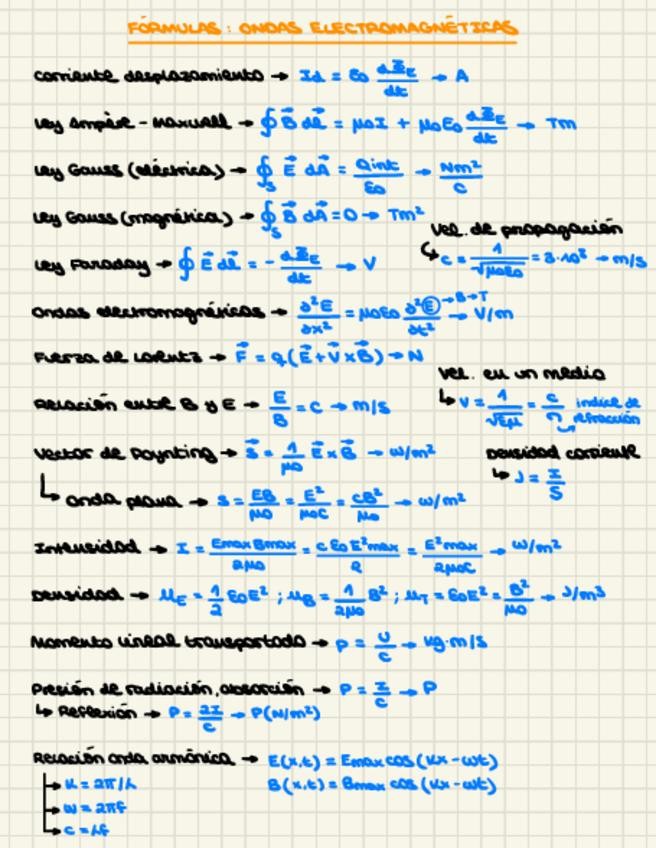 FÓRMULAS : ONDAS ELECTROMAGNÉTICAS
Corriente desplazamiento → Id = ε0 dΦE/dt → A
Ley Ampère - Maxwell → ∮ B⃗ dl⃗ = μ0I + μ0ε0 dΦE/dt → Tm
Ley Gauss (eléctrica) → ∮s E⃗ dA⃗ = Qint/ε0 → Nm²/C
Ley Gauss (magnética) → ∮s B⃗ dA⃗ = 0 → Tm²
Vel. de propagación
↳ c = 1/√μ0ε0 = 3·10⁸ → m/s
Ley Faraday → ∮ E⃗ dl⃗ = - dΦE/dt → V
Ondas electromagnéticas → ∂²E/∂x² = μ0ε0 ∂²E/∂t² → V/m
→ B → T
Fuerza de Lorentz → F⃗ = q(E⃗ + V⃗ x B⃗) → N
Vel. en un medio
↳ V = 1/√εμ = c/n índice de refracción
Relación entre B y E → E/B = c → m/s
Vector de Poynting → S⃗ = 1/μ0 E⃗ x B⃗ → w/m²
Densidad corriente
↳ J = I/S
↳ Onda plana → S = EB/μ0 = E²/μ0c = cB²/μ0 → w/m²
Intensidad → I = Emax Bmax/2μ0 = c ε0 E²max/2 = E²max/2μ0c → w/m²
Densidad → μE = 1/2 ε0E² ; μB = 1/2μ0 B² ; μT = ε0E² = B²/μ0 → J/m³
Momento lineal transportado → P = U/c → kg·m/s
Presión de radiación, absorción → P = I/c → P
↳ Reflexión → P = 2I/c → P(N/m²)
Relación onda armónica → E(x,t) = Emax cos(kx - wt)
B(x,t) = Bmax cos(kx - wt)
→ k = 2π/λ
→ w = 2πf
→ c = λf